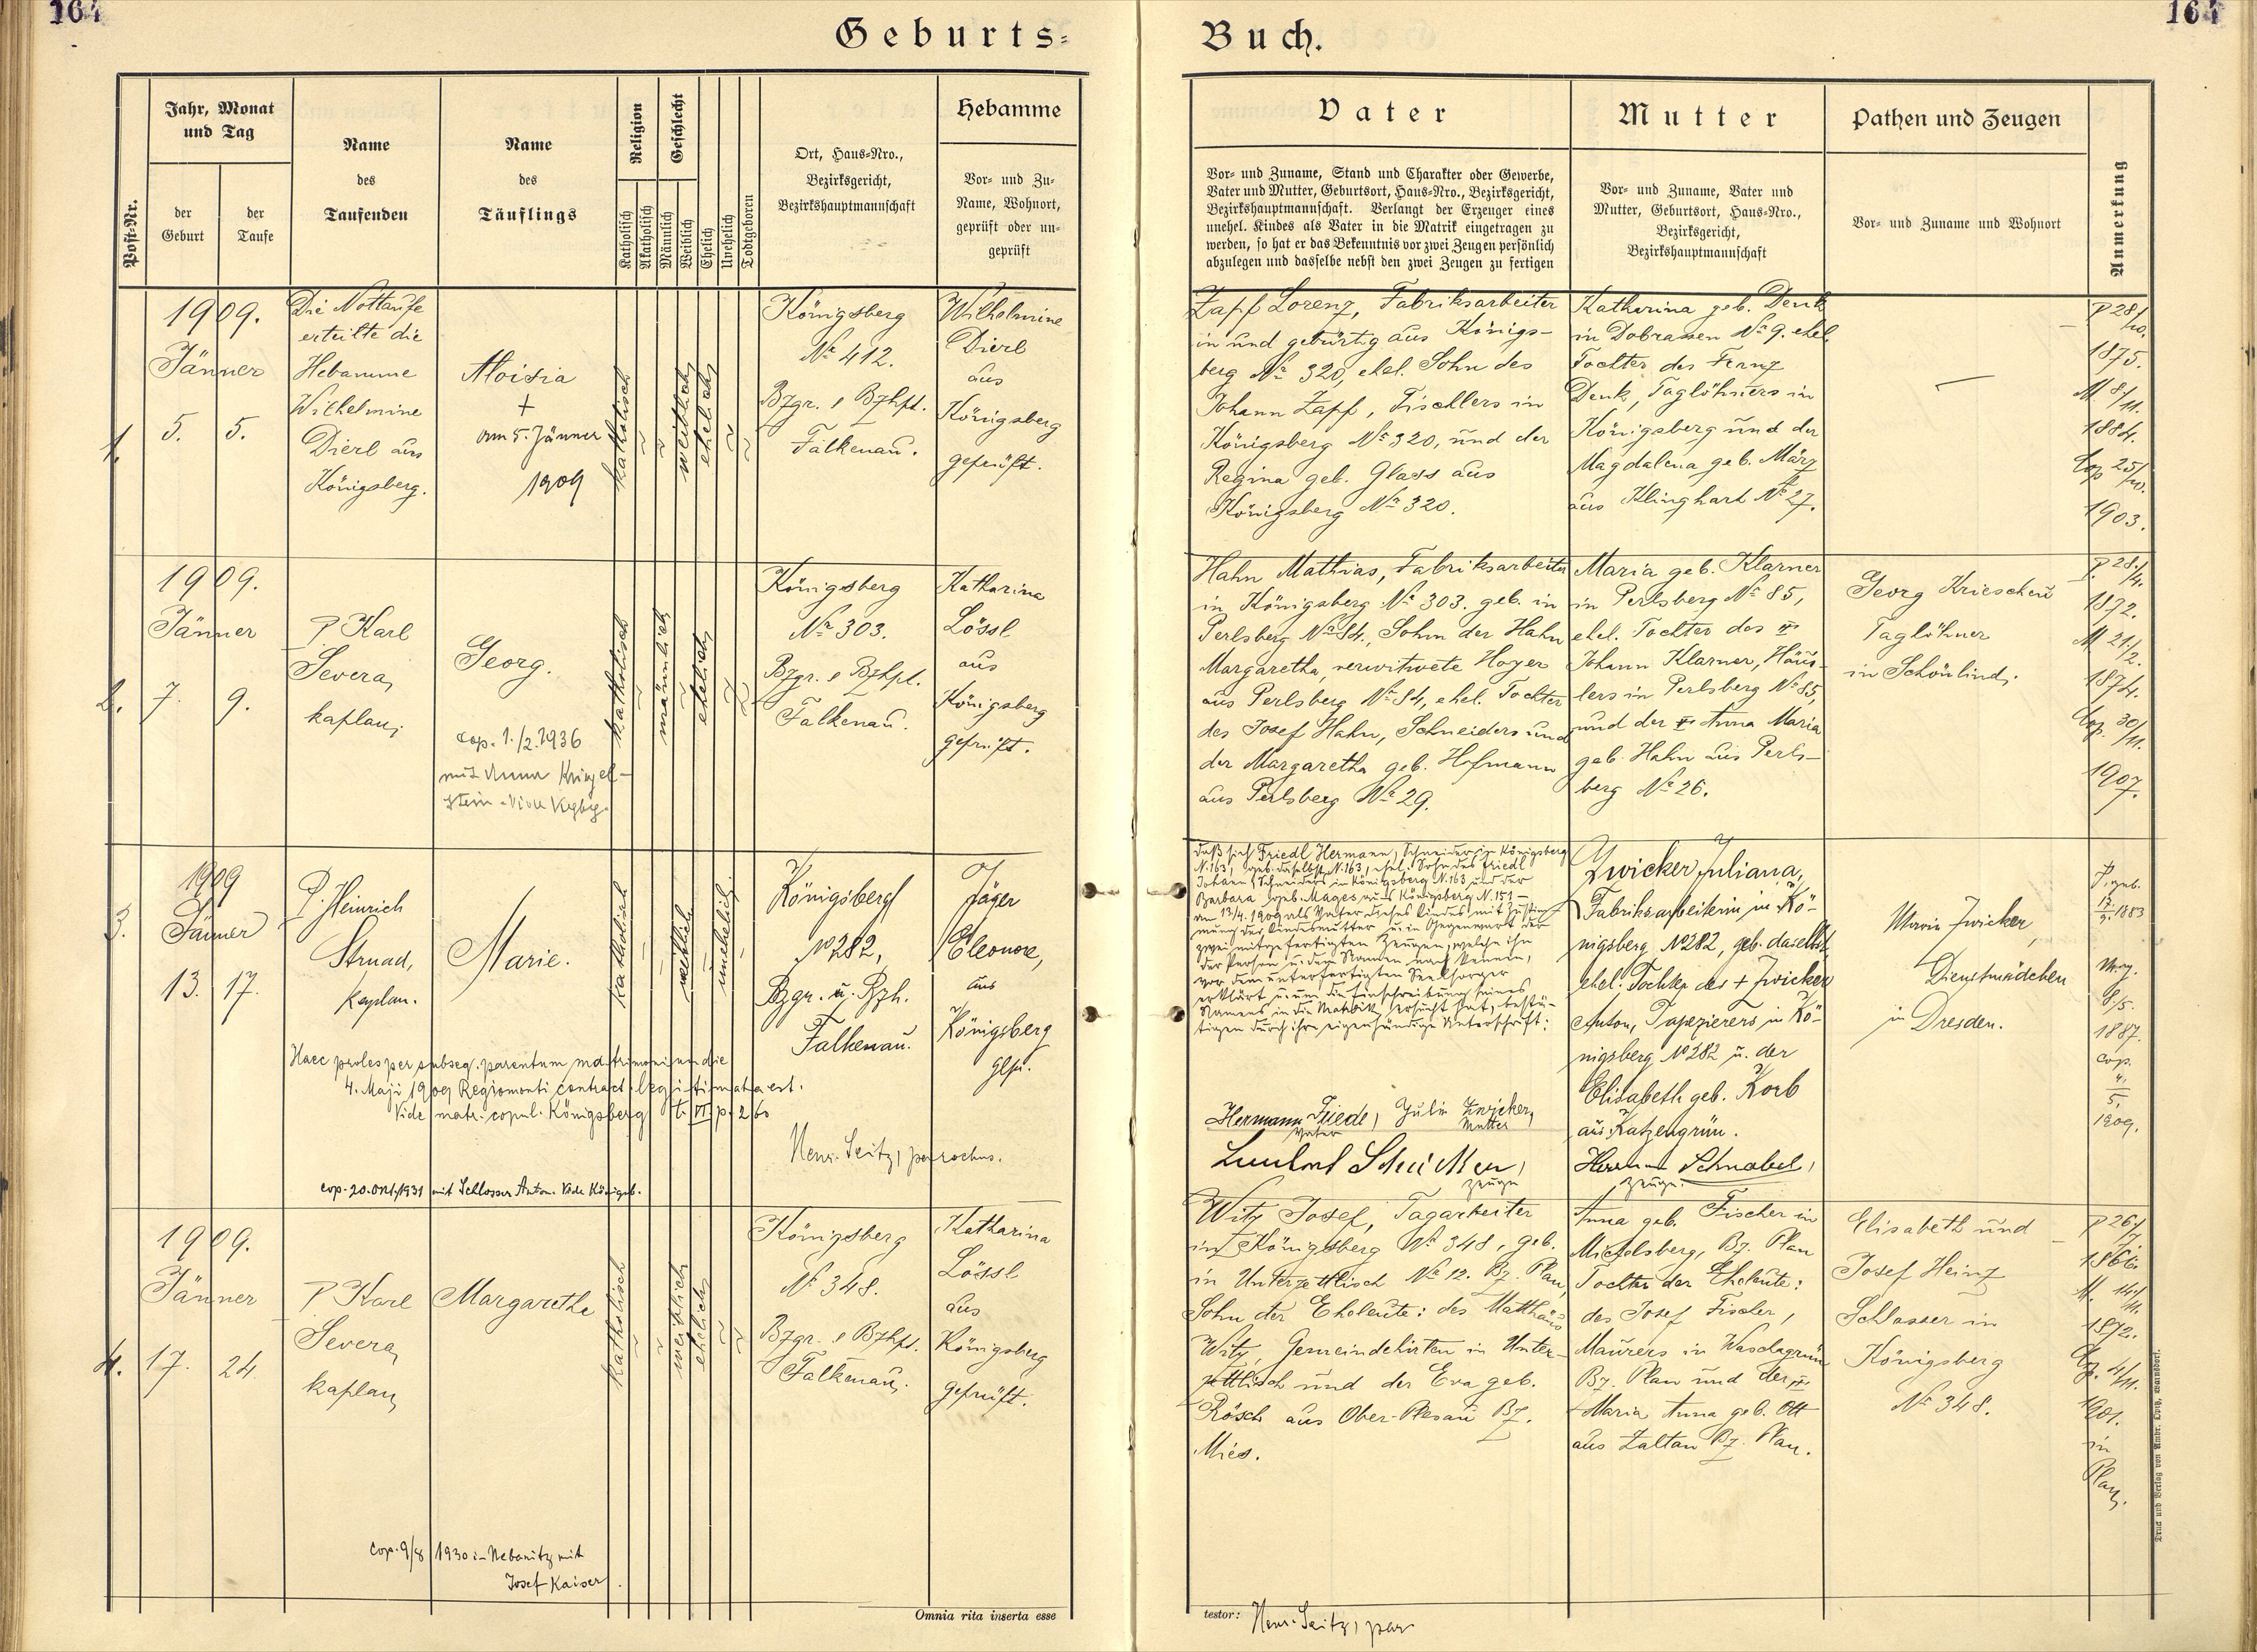 164
164
Geburts-
Buch.
Post-Nr.
Jahr, Monat
und Tag
der
Geburt
der
Taufe
Name
des
Taufenden
Name
des
Täuflings
Religion
Katholisch
Akatholisch
Geschlecht
Männlich
Weiblich
Ehelich
Unehelich
Todtgeboren
Ort, Haus-Nro.,
Bezirksgericht,
Bezirkshauptmannschaft
Hebamme
Vor- und Zu-
Name, Wohnort,
geprüft oder un-
geprüft
Vater
Vor- und Zuname, Stand und Charakter oder Gewerbe,
Vater und Mutter, Geburtsort, Haus-Nro., Bezirksgericht,
Bezirkshauptmannschaft. Verlangt der Erzeuger eines
unehel. Kindes als Vater in die Matrik eingetragen zu
werden, so hat er das Bekenntnis vor zwei Zeugen persönlich
abzulegen und dasselbe nebst den zwei Zeugen zu fertigen
Mutter
Vor- und Zuname, Vater und
Mutter, Geburtsort, Haus-Nro.,
Bezirksgericht,
Bezirkshauptmannschaft
Pathen und Zeugen
Vor- und Zuname und Wohnort
Anmerkung
1.
1909.
Jänner
5. 5.
Die Nottaufe
erteilte die
Hebamme
Wilhelmine
Dierl aus
Königsberg.
Aloisia
+
am 5. Jänner
1909
katholisch
weiblich
ehelich
Königsberg
No 412.
Bzgr. & Bzhpt.
Falkenau.
Wilhelmine
Dierl
aus
Königsberg
geprüft.
Zapf Lorenz, Fabriksarbeiter
in und gebürtig aus Königs-
berg No 320, ehel. Sohn des
Johann Zapf, Tischlers in
Königsberg No 320, und der
Regina geb. Glass aus
Königsberg No 320.
Katharina geb. Denk
in Dobrassen No 9. ehel.
Tochter des Franz
Denk, Taglöhners in
Königsberg und der
Magdalena geb. März
aus Klinghart No 27.
P 28/10.
1875.
M 8/11.
1884.
Cop 25/10.
1903.
2.
1909.
Jänner
7. 9.
P Karl
Severa,
kaplan.
Georg.
cop. 1./2. 1936
mit Anna Kringel-
stein
katholisch
männlich
ehelich
Königsberg
No 303.
Bzgr. & Bzhpt.
Falkenau.
Katharina
Lössl
aus
Königsberg
geprüft.
Hahn Mathias, Fabriksarbeiter
in Königsberg No 303. geb. in
Perlsberg No 84., Sohn der Hahn
Margaretha, verwitwete Hoyer
aus Perlsberg No 84, ehel. Tochter
des Josef Hahn, Schneiders und
der Margaretha geb. Hofmann
aus Perlsberg No 29.
Maria geb. Klarner
in Perlsberg No 85,
ehel. Tochter des
Johann Klarner, Häus-
lers in Perlsberg No 85,
und der Anna Maria
geb. Hahn aus Perls-
berg No 26.
Georg
Taglöhner
in Schönlind.
P 28./4.
1872.
M 21/2.
1874.
Cop. 30/11.
1907.
3.
1909
Jänner
13. 17.
P. Heinrich
Strnad,
Kaplan.
Marie.
katholisch
weiblich
unehelich
Königsberg
No 282,
Bzgr. u. Bzh.
Falkenau.
Jäger
Eleonore,
aus
Königsberg
gepr.
Haec proles per subseq. parentum matrimonium die
4. Maji 1909 Regiomonti contract. legitimata est.
Vide matr. copul. Königsberg t. VI p. 260
Henr. Seitz, parochus.
cop. 20. Okt. 1931 mit Schlosser Anton. Vide Königsb.
daß sich Friedl Hermann, Schneider in Königsberg
N. 163, geb. daselbst N. 163, ehel. Sohn des Friedl
Johann, Schneiders in Königsberg N. 163 und der
Barbara geb. Mages aus Königsberg N. 151 –
am 13/4. 1909 als Vater dieses Kindes mit Zustim-
mung der Kindesmutter u. in Gegenwart der
zwei mitgefertigten Zeugen, welche ihn
der Person u. dem Namen nach kennen,
vor dem unterfertigten Seelsorger
erklärt u. um die Einschreibung seines
Namens in die Matrik ersucht hat, bestä-
tigen durch ihre eigenhändige Unterschrift:
Hermann Friedl, Julie Zwicker,
Vater Mutter
Zeuge
Zwicker Juliana,
Fabriksarbeiterin in Kö-
nigsberg, No 282, geb. daselbst,
ehel. Tochter des + Zwicker
Anton, Tapezierers in Kö-
nigsberg No 282 u. der
Elisabeth geb. Korb
aus Katzengrün.
Herman Schnabel,
Zeuge.
Maria Zwicker,
Dienstmädchen
in Dresden.
P. geb.
17./9. 1883
M. g.
8/5.
1887.
cop.
4./5.
1909.
4.
1909.
Jänner
17. 24.
P Karl
Severa,
kaplan,
Margarethe
katholisch
weiblich
ehelich
Königsberg
No 348.
Bzgr. & Bzhpt.
Falkenau.
Katharina
Lössl
aus
Königsberg
geprüft.
Witz Josef, Tagarbeiter
in Königsberg No 348, geb.
in Unterzettlisch No 12. Bz. Plan,
Sohn der Eheleute: des Matthäus
Witz, Gemeindehirten in Unter-
zettlisch und der Eva geb.
Rösch aus Ober-Plesau Bz.
Mies.
Anna geb. Fischer in
Michelsberg, Bz. Plan
Tochter der Eheleute:
des Josef Fischer,
Maurers in Waschagrün
Bz. Plan und der
Maria Anna geb. Ott
aus Zaltau Bz. Plan.
Elisabeth und
Josef Heinz
Schlosser in
Königsberg
No 348.
P 26./7.
1866.
M. 14./11.
1872.
Cop. 4/11.
1901.
in
Plan.
cop. 9/8 1930 in Nebanitz mit
Josef Kaiser
Omnia rita inserta esse
testor: Henr. Seitz, par
Druck und Verlag von Ambr. Opitz, Warnsdorf.